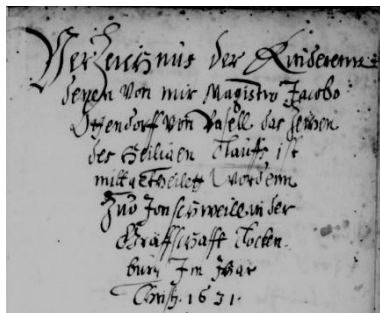 Verzeichnus der Kinderenn
denen von mir Magistro Jacobo
von Basell das
des Heiligen Tauffs ist
mittgetheilett wordenn
Zuo Jonschweill in der
Graffschafft Tocken
burg Im Jhar
Christi. 1631.